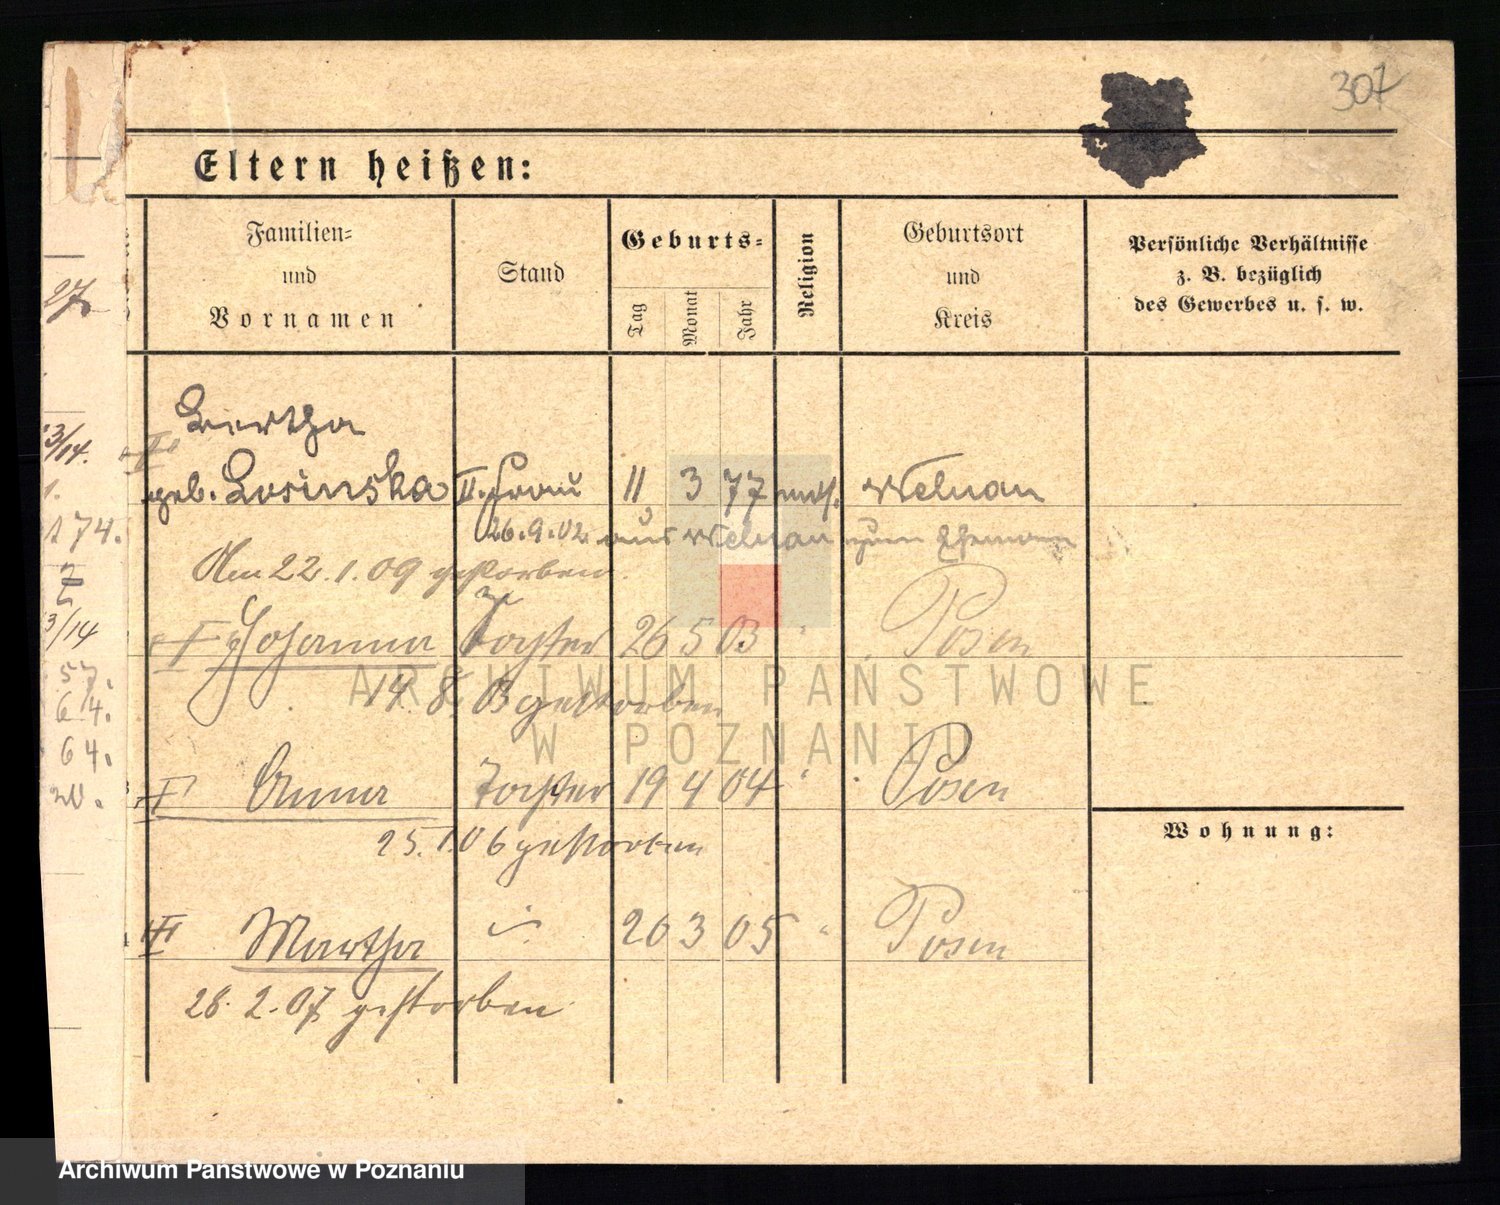 307
Eltern heißen:
Familien=
und
Vornamen
Stand
Geburts=
Tag
Monat
Jahr
Religion
Geburtsort
und
Kreis
Persönliche Verhältnisse
z. B. bezüglich
des Gewerbes u. s. w.
27.
3/14.
Bertha
geb. Losinska II. Frau 11 3 77 Welnau
1.
174.
26.9.02. aus Welnau zum Ehemann
Am 22.1.09 gestorben.
3/14
I Johanna Tochter 26 5 03 " Posen
57.
14. 8. 03 gestorben
64.
ARCHIWUM PAŃSTWOWE
W POZNANIU
64.
II Anna Tochter 19 4 04 " Posen
20.
25.1.06 gestorben
Wohnung:
III Martha 26 3 05 " Posen
28. 2. 07 gestorben
Archiwum Państwowe w Poznaniu